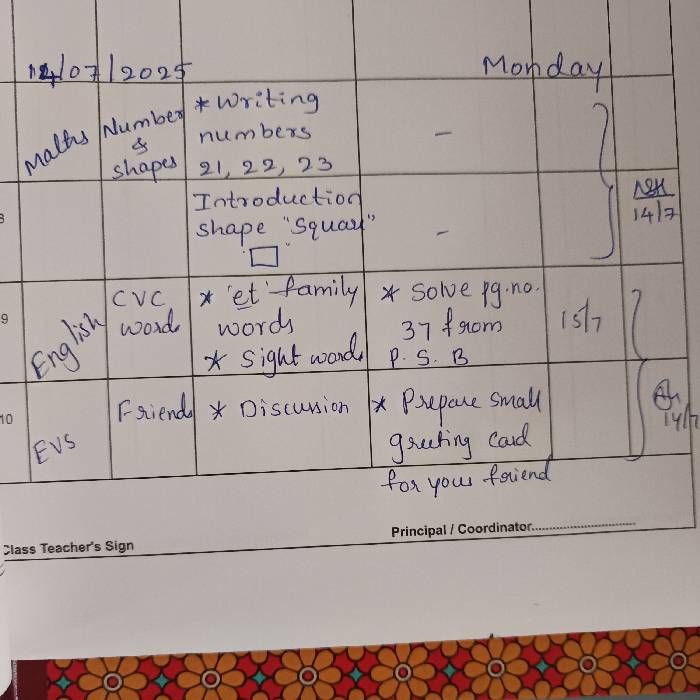 14/07/2025 Monday
Maths Number * Writing -
& numbers
shapes 21, 22, 23
8 Introduction -
shape "Square"
14/7
9 English CVC * 'et' family * Solve pg.no. 15/7
word words 37 from
* Sight words P. S. B
10 EVS Friends * Discussion * Prepare small
greeting card 14/7
for your friend
Class Teacher's Sign Principal / Coordinator